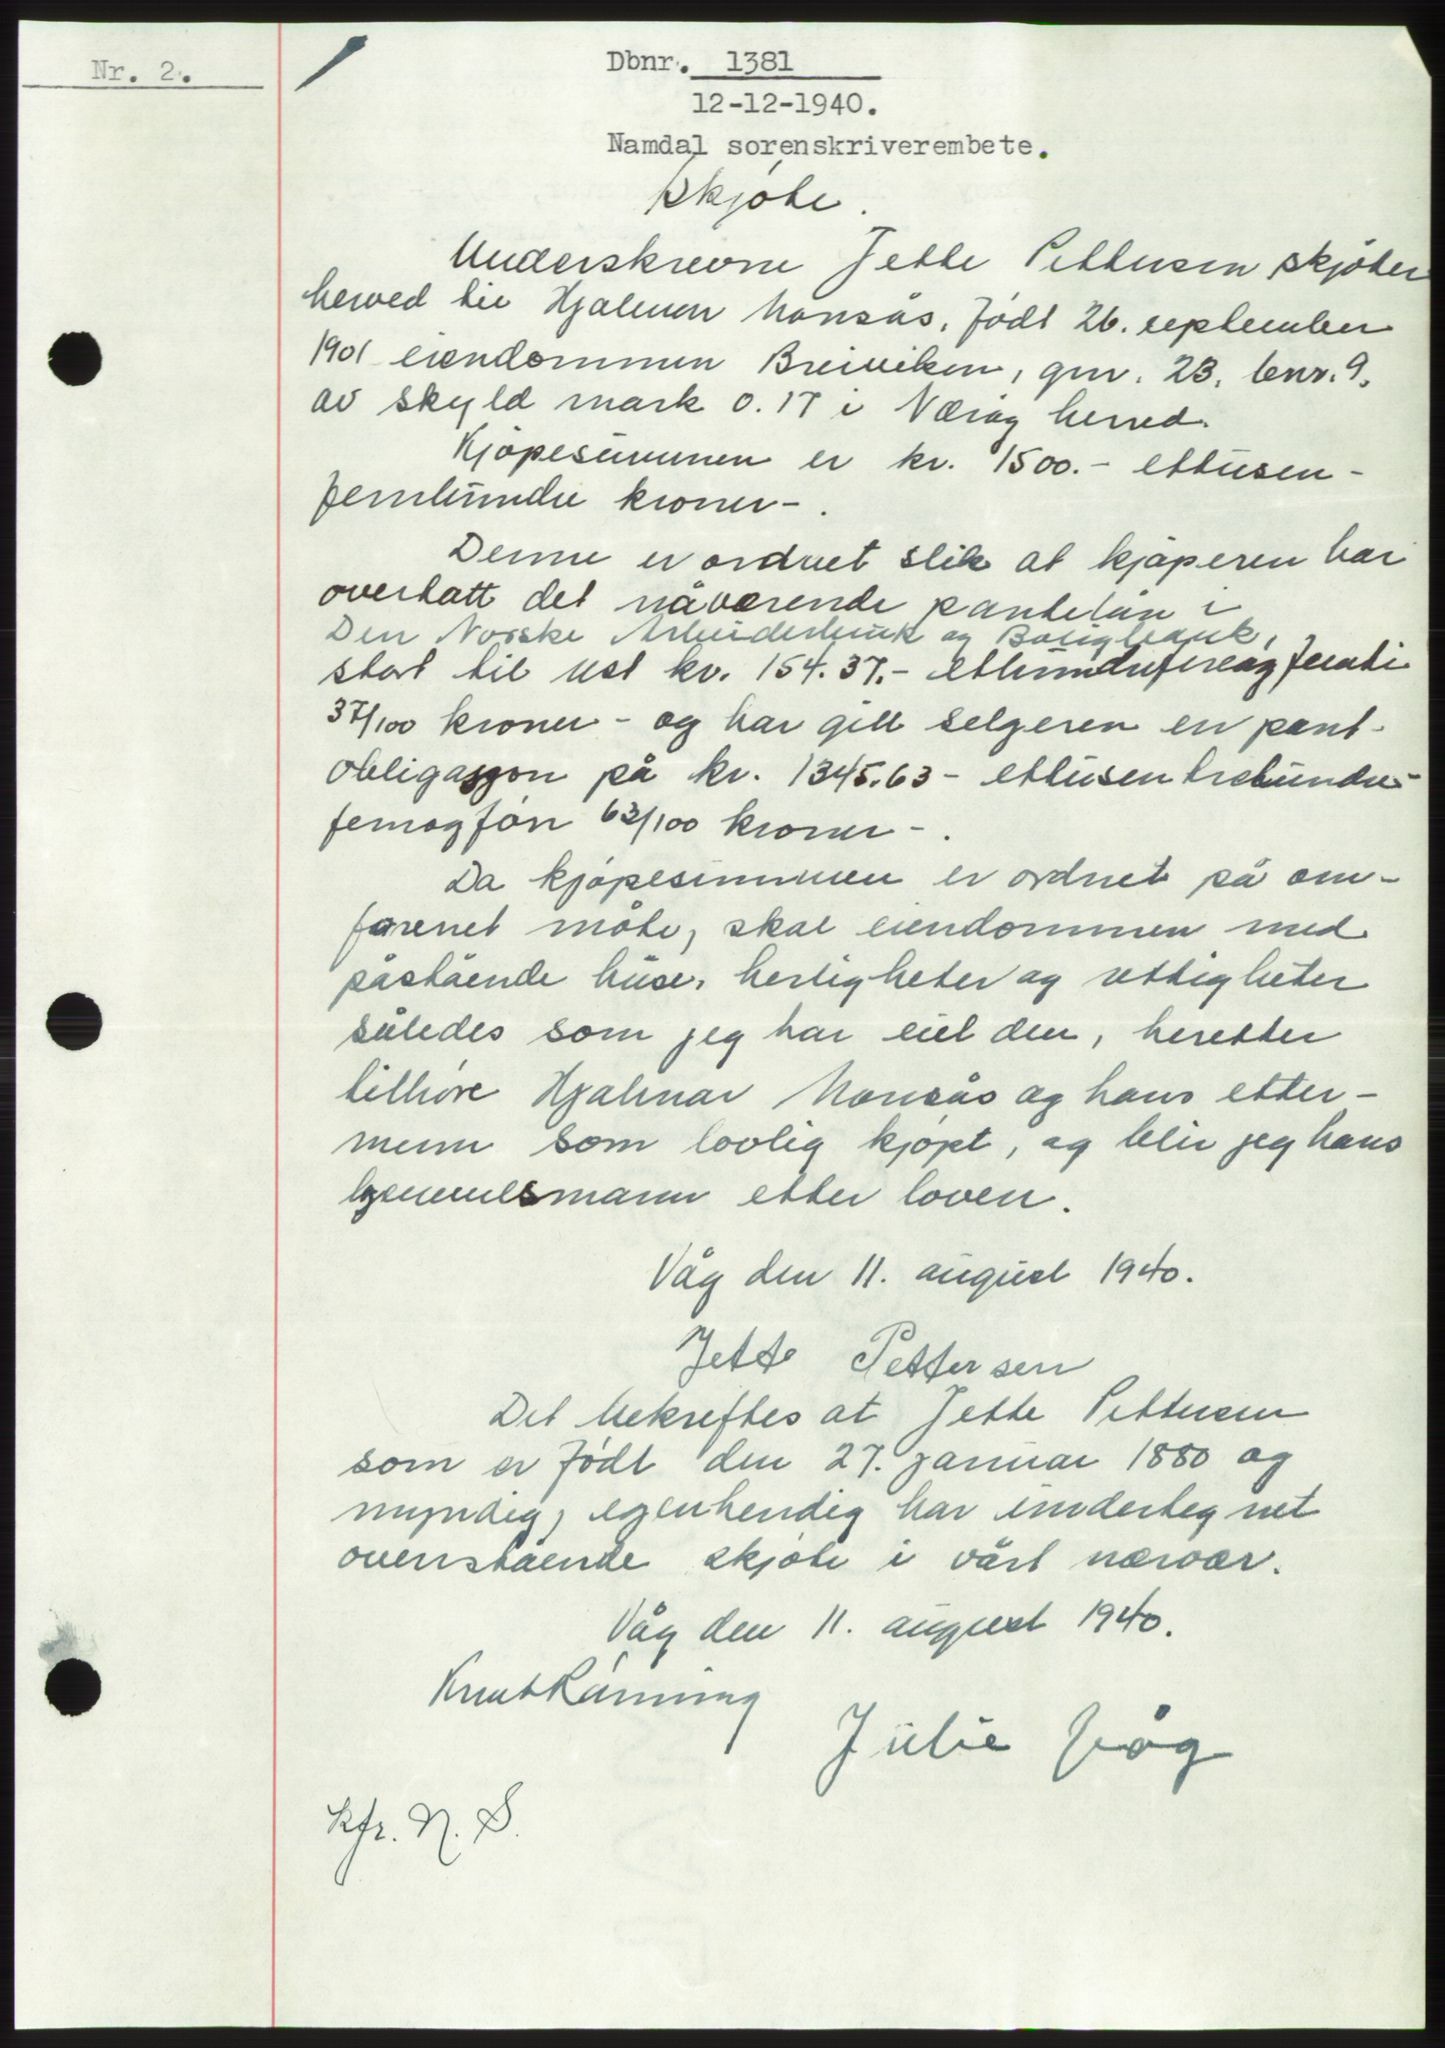 Nr. 2.
Dbnr. 1381
12-12-1940.
Namdal sorenskriverembete.
Skjöte.
Underskrevne Jette Pettersen skjöter
herved til Hjalmar Monsås, født 26. september
1901 eiendommen Breiviken, gnr. 23, bnr. 9,
av skyld mark 0.17 i Nærøy herred.
Kjöpesummen er kr. 1500.- ettusen-
femhundre kroner-.
Denne er ordnet slik at kjöperen har
overtatt det nåværende pantelån i
Den Norske Arbeiderbruk og Boligbank,
stort til rest kr. 154.37.- etthundrefireogfemti
37/100 kroner - og har gitt selgeren en pant-
obligasjon på kr. 1345.63 - ettusentrehundre-
femogförti 63/100 kroner -.
Da kjöpesummen er ordnet på om-
forenet måte, skal eiendommen med
påstående huse, herligheter og rettigheter
således som jeg har eiet den, heretter
tilhöre Hjalmar Monsås og hans etter-
menn som lovlig kjöpt, og blir jeg hans
hjemmelsmann etter loven.
Våg den 11. august 1940.
Jette Pettersen
Det bekreftes at Jette Pettersen
som er födt den 27. januar 1880 og
myndig, egenhendig har undertegnet
ovenstående skjöte i vårt nærvær.
Våg den 11. august 1940.
Knut Rönning
Julie Våg
kfr. N. S.